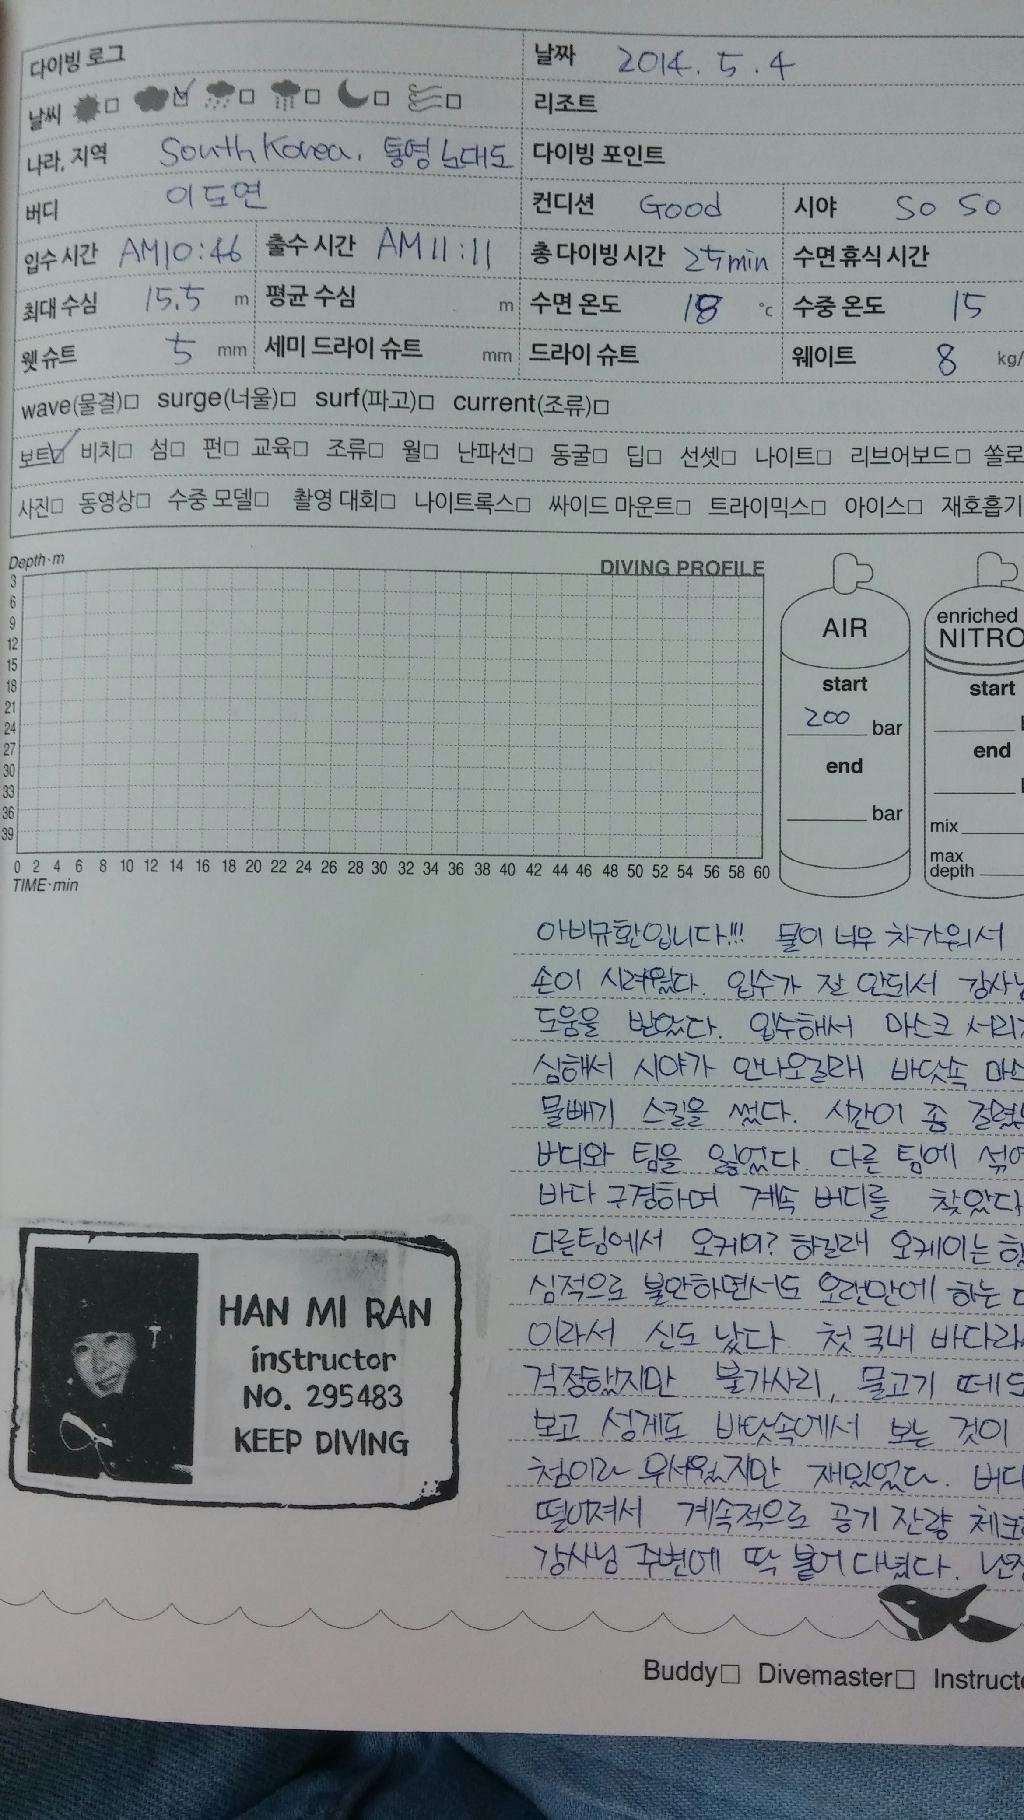 다이빙 로그
날짜 2014. 5. 4
날씨
리조트
나라, 지역 South Korea, 통영 노대도
다이빙 포인트
버디 이도연
컨디션 Good 시야 so so
입수 시간 AM10:46 출수 시간 AM11:11 총 다이빙 시간 25min 수면 휴식 시간
최대 수심 15.5 m 평균 수심 m 수면 온도 18 °c 수중 온도 15
웻 슈트 5 mm 세미 드라이 슈트 mm 드라이 슈트 웨이트 8 kg/
wave(물결)□ surge(너울)□ surf(파고)□ current(조류)□
보트☑ 비치□ 섬□ 펀□ 교육□ 조류□ 월□ 난파선□ 동굴□ 딥□ 선셋□ 나이트□ 리브어보드□ 쏠로
사진□ 동영상□ 수중 모델□ 촬영 대회□ 나이트록스□ 싸이드 마운트□ 트라이믹스□ 아이스□ 재호흡기
Depth·m
DIVING PROFILE
3
6
9
12
15
18
21
24
27
30
33
36
39
0 2 4 6 8 10 12 14 16 18 20 22 24 26 28 30 32 34 36 38 40 42 44 46 48 50 52 54 56 58 60
TIME·min
AIR
start
200 bar
end
bar
enriched
NITRO
start
end
mix
max
depth
아비규환입니다!!! 물이 너무 차가워서
손이 시려웠다. 입수가 잘 안되서 강사님
도움을 받았다. 입수해서 마스크 서리가
심해서 시야가 안나오길래 바닷속 마스
물빼기 스킬을 썼다. 시간이 좀 걸렸
버디와 팀을 잃었다. 다른 팀에 섞여
바다 구경하며 계속 버디를 찾았다
다른팀에서 오케이? 하길래 오케이는 했
심적으로 불안하면서도 오랜만에 하는 다
이라서 신도 났다. 첫 국내 바다라
걱정했지만 불가사리, 물고기 떼도
보고 성게도 바닷속에서 보는 것이
첨이라 무서웠지만 재밌었다. 버디
떨어져서 계속적으로 공기 잔량 체크
강사님 주변에 딱 붙어 다녔다. 난장
HAN MI RAN
instructor
NO. 295483
KEEP DIVING
Buddy□ Divemaster□ Instructo